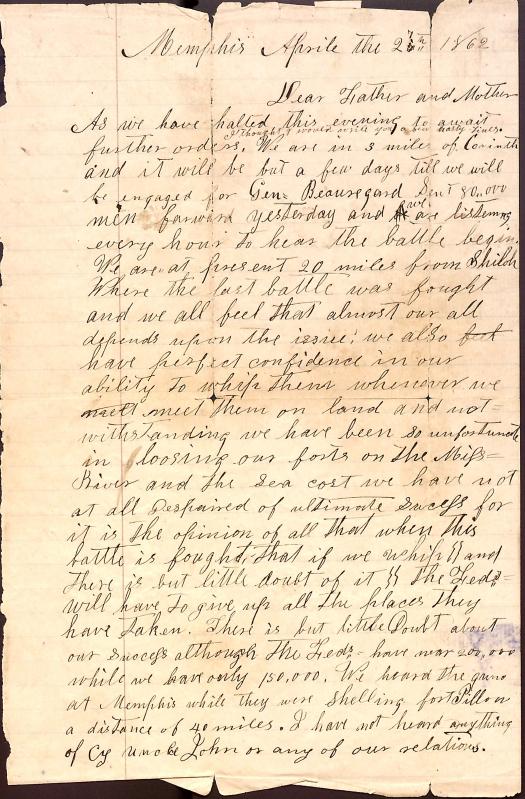 Memphis Aprile the 27th 1862
Dear Father and Mother
As we have halted this evening to await
I thought I would write you a few hasty lines.
further orders. We are in 3 miles of Corinth
and it will be but a few days till we will
be engaged for Gen= Beauregard sent 80,000
men forward yesterday and we are listening
every hour to hear the battle begin.
We are at present 20 miles from Shiloh
Where the last battle was fought
and we all feel that almost our all
depends upon the issue; we also feel
have perfect confidence in our
ability to whip them whenever we
meet meet them on land and not=
withstanding we have been so unfortunate
in loosing our forts on the Miss=
River and the sea cost we have not
at all despaired of ultimate success for
it is the opinion of all that when this
battle is fought, that if we whip (( and
there is but little doubt of it )) the Feds=
will have to give up all the places they
have taken. There is but little doubt about
our success although the Feds= have near 200,000
while we have only 150,000. We heard the guns
at Memphis while they were shelling fort Pillow
a distance of 40 miles. I have not heard anything
of Cy Uncle John or any of our relations.